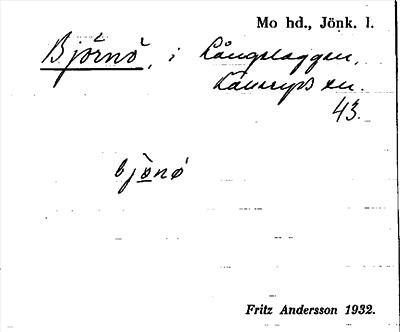 Mo hd., Jönk. l.
Björnö, i Långelaggen,
Kånseryds en.
43.
bjönö
Fritz Andersson 1932.